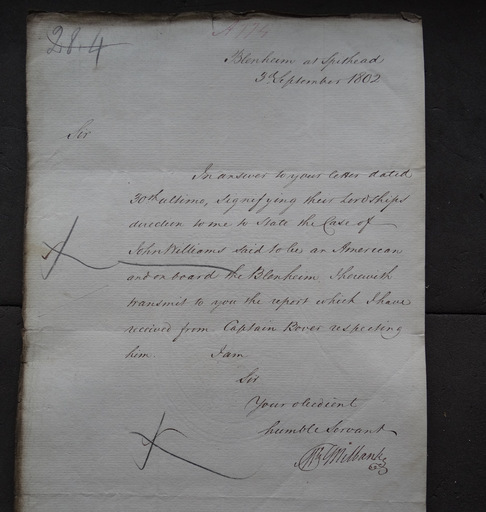 28.4
A 174
Blenheim at Spithead
3d September 1802
Sir
In answer to your letter dated
30th ultimo, signifying their Lordships
direction to me to State the Case of
John Williams said to be an American
and on board the Blenheim I herewith
transmit to you the report which I have
received from Captain Bover respecting
him. I am
Sir
Your obedient
humble Servant
Milbanke